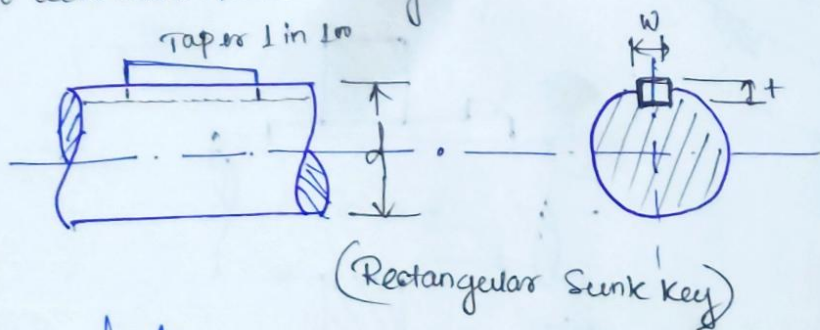 Taper 1 in 100
W
t
d
(Rectangular Sunk key)